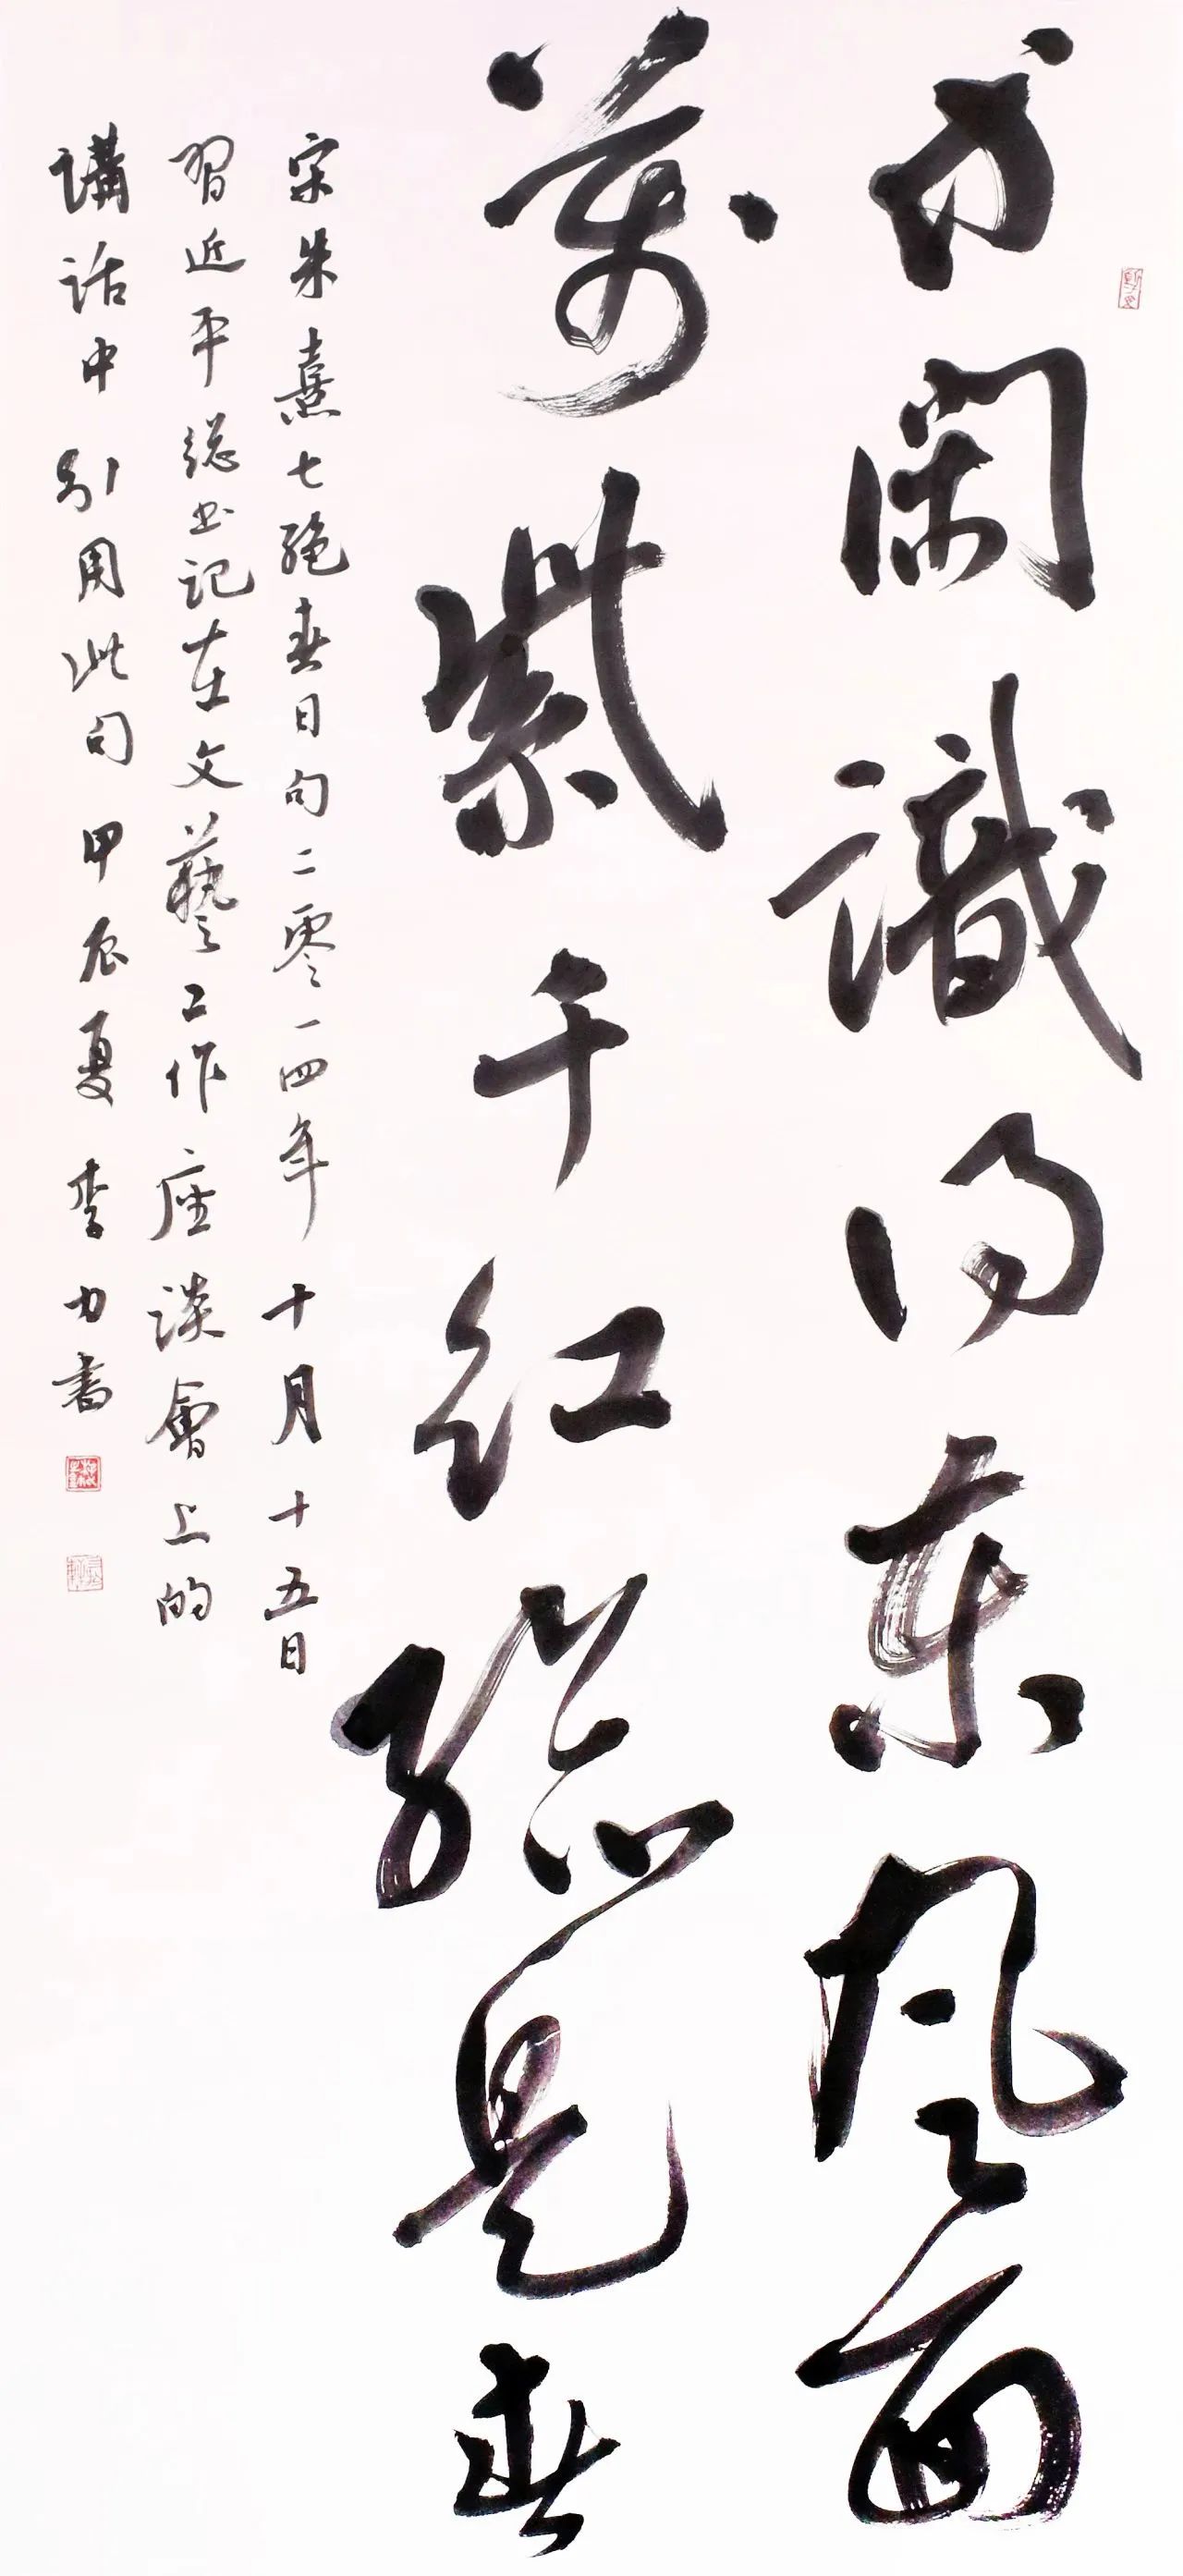 等閑識得東風面
萬紫千紅總是春
宋朱熹七絕春日句二零一四年十月十五日
習近平總书記在文藝工作座談會上的
講話中引用此句 甲辰夏 李力書